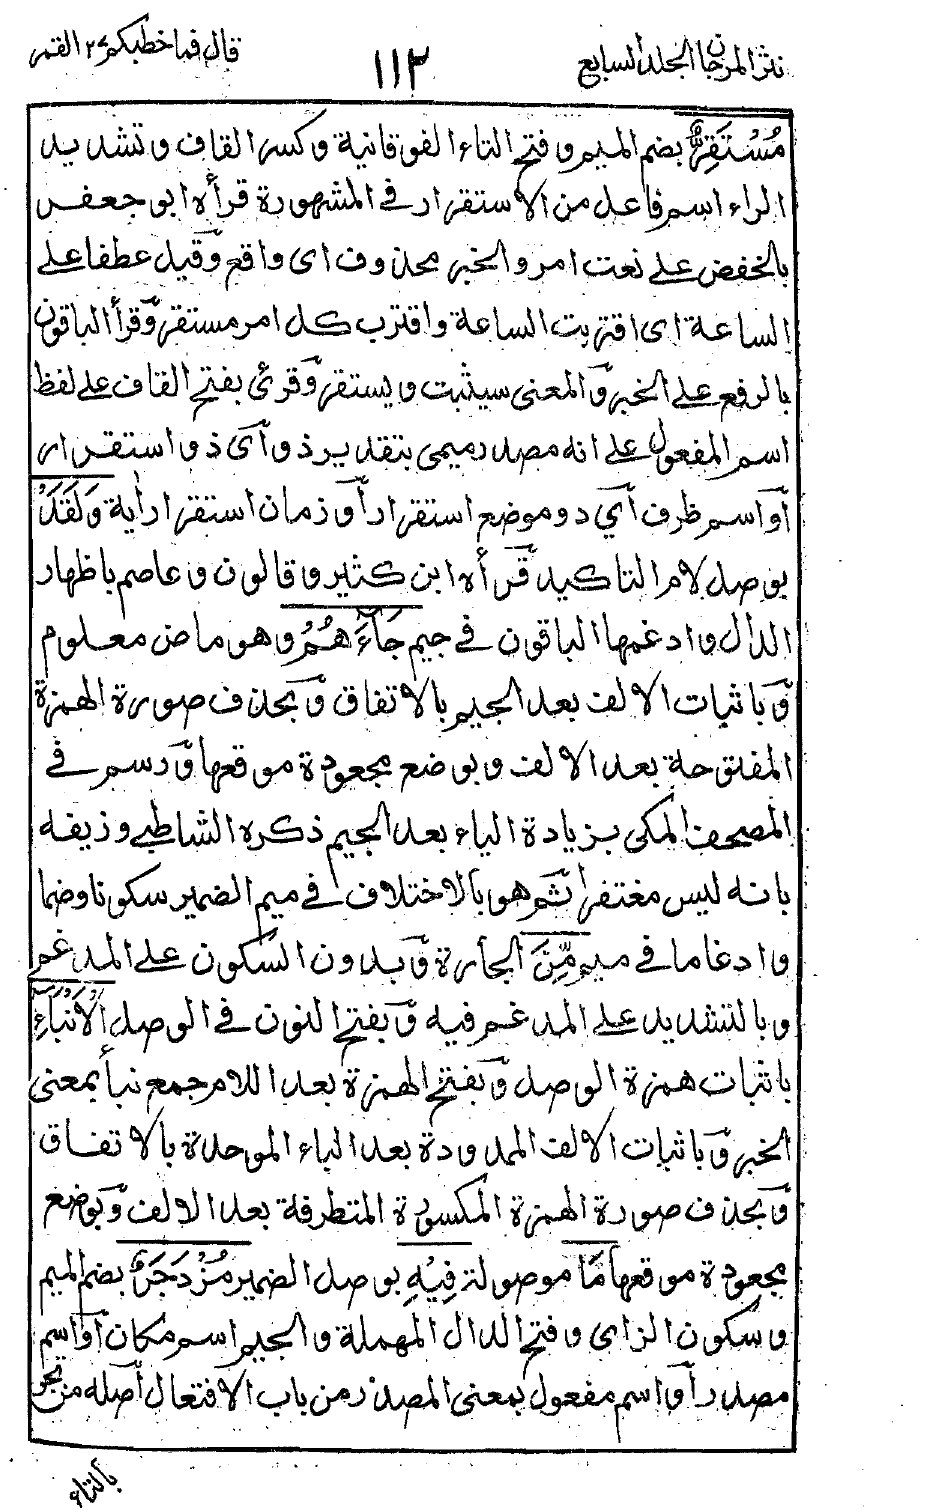 نثر المرجان الجلد السابع
١١٣
قال فما خطبكم ٢٧ القمر
مُسْتَقِرٌّ بضم الميم و فتح التاء الفوقانية و كسر القاف و تشديد
الراء اسم فاعل من الاستقرار في المشهورة قرأه ابو جعفر
بالخفض على نعت امر و الخبر محذوف اى واقع وقيل عطفا على
الساعة اى اقتربت الساعة و اقترب كل امر مستقر وقرأ الباقون
بالرفع على الخبر و المعنى سيثبت و يستقر وقرئ بفتح القاف على لفظ
اسم المفعول على انه مصدر ميمى بتقدير ذو آى ذو استقرار
أو اسم ظرف آي ذو موضع استقرار أو زمان استقرار أية وَلَقَدْ
بوصل لام التاكيد قرأه ابن كثير و قالون و عاصم باظهار
الدال و ادغمها الباقون في جيم جَآءَهُمْ و هو ماض معلوم
و باثبات الالف بعد الجيم بالاتفاق و بحذف صورة الهمزة
المفتوحة بعد الالف و بوضع مجعودة موقعها و رسم في
المصحف المكى بزيادة الياء بعد الجيم ذكره الشاطبي و زيفه
بانه ليس مغتفرا ثم هو بالاختلاف في ميم الضمير سكونا وضما
و ادغاما في ميم مِّنَ الجارة و بدون السكون على المدغم
و بالتشديد على المدغم فيه و بفتح النون في الوصل الْاَنْبَآءِ
باثبات همزة الوصل و بفتح الهمزة بعد اللام جمع نبأ بمعنى
الخبر و باثبات الالف الممدودة بعد الباء الموحدة بالاتفاق
و بحذف صورة الهمزة المكسورة المتطرفة بعد الالف و بوضع
مجعودة موقعها مَا موصولة فِيْهِ بوصل الضمير مُزْدَجَرٌ بضم الميم
و سكون الزاي و فتح الدال المهملة و الجيم اسم مكان أو اسم
مصدر أو اسم مفعول بمعنى المصدر من باب الافتعال أصله مزتجر
بالتاء